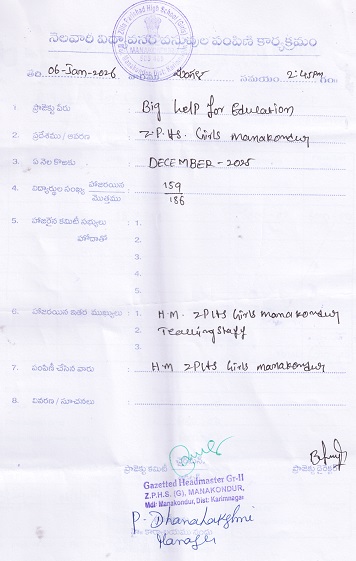 నెలవారి విద్యోపకరణ వస్తువుల పంపిణీ కార్యక్రమం
తేది: 06-Jan-2026 సమయం 2:45pm
1. ప్రాజెక్టు పేరు Big help for Education
2. ప్రదేశము / ఆవరణ Z.P.H.S. Girls manakondur
3. ఏ నెల కొరకు DECEMBER - 2025
4. విద్యార్థుల సంఖ్య హాజరయిన 159
మొత్తము 186
5. హాజరైన కమిటీ సభ్యులు 1.
హోదాతో 2.
3.
4.
5.
6. హాజరయిన ఇతర ముఖ్యులు 1. H.M. ZPHS Girls manakondur
2. Teaching staff
3.
7. పంపిణీ చేసిన వారు H.M ZPHS Girls manakondur
8. వివరణ / సూచనలు
ప్రాజెక్టు కమిటీ
Gazetted Headmaster Gr-II
Z.P.H.S. (G), MANAKONDUR,
Mdl: Manakondur, Dist: Karimnagar
P. Dhanalakshmi
Manager